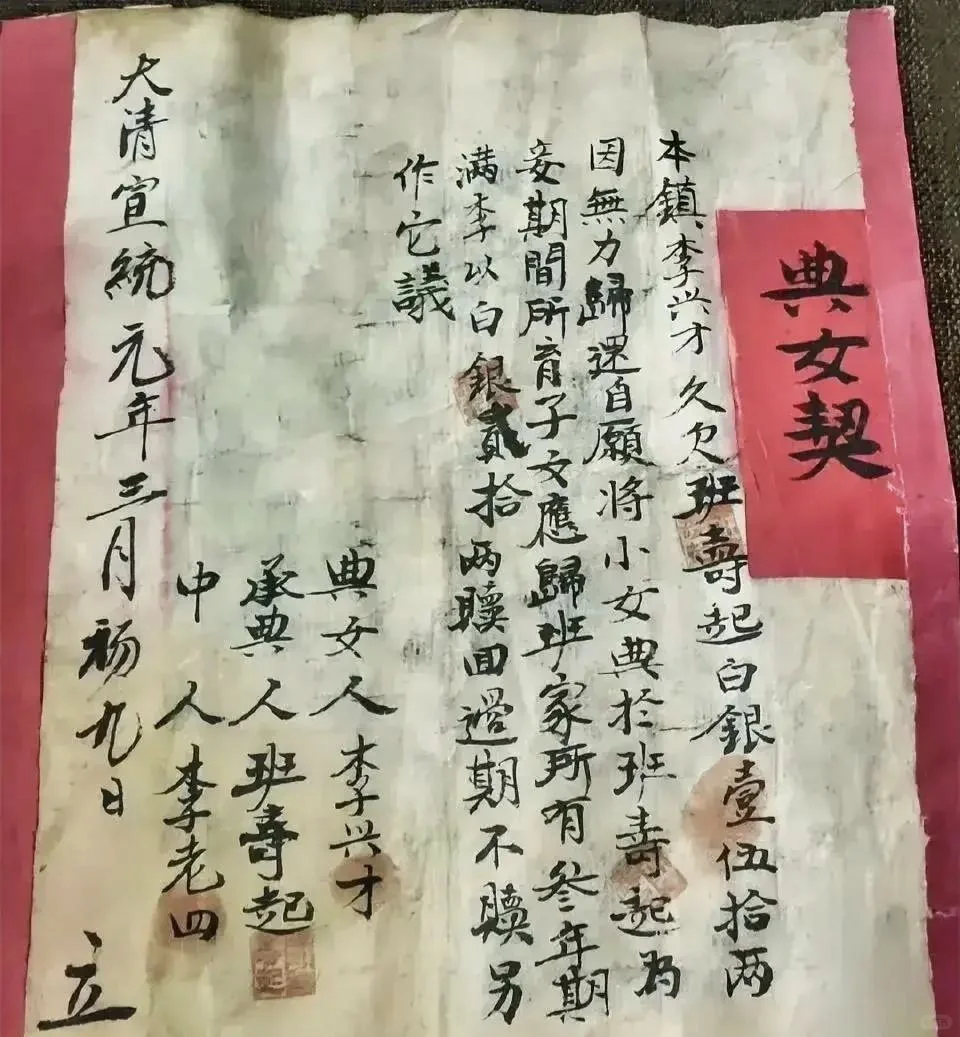 典女契
本鎮李兴才久欠班壽起白銀壹伍拾两
因無力歸還自願将小女典於班壽起为
妾期間所育子女應歸班家所有叁年期
满李以白銀貳拾两贖回過期不贖另
作它議
典女人李兴才
承典人班壽起
中人李老四
大清宣統元年三月初九日立